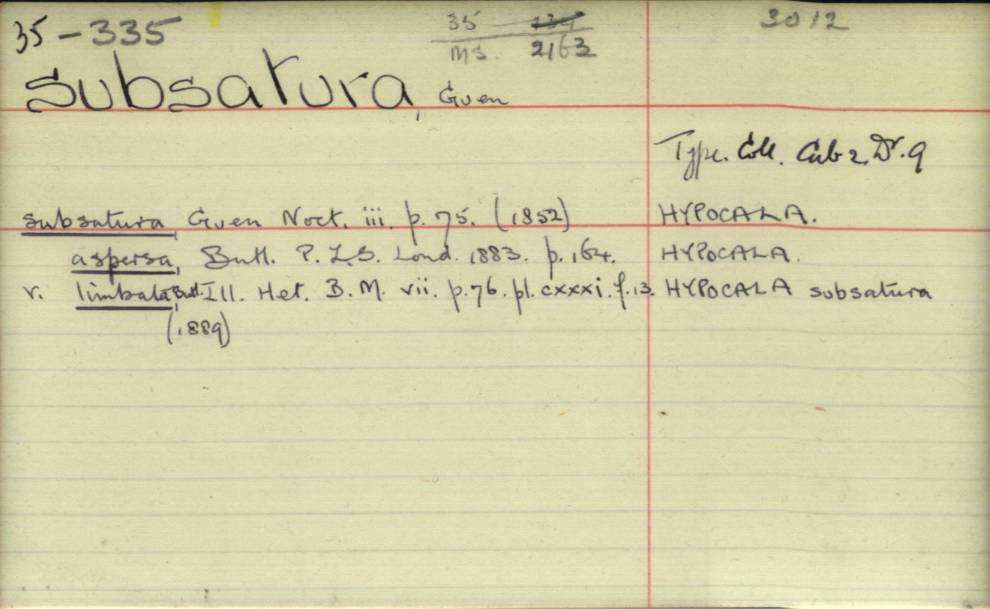 35-335
35
MS. 2163
3012
subsatura, Guen
Type. Coll. Cab 2. Dr. 9
subsatura, Guen Noct. iii. p. 75. (1852) HYPOCALA.
aspersa, Butl. P. Z. S. Lond. 1883. p. 164. HYPOCALA.
v. limbata, Butl. Ill. Het. B. M. vii. p. 76. pl. cxxxi. f. 13. HYPOCALA subsatura
(1889)